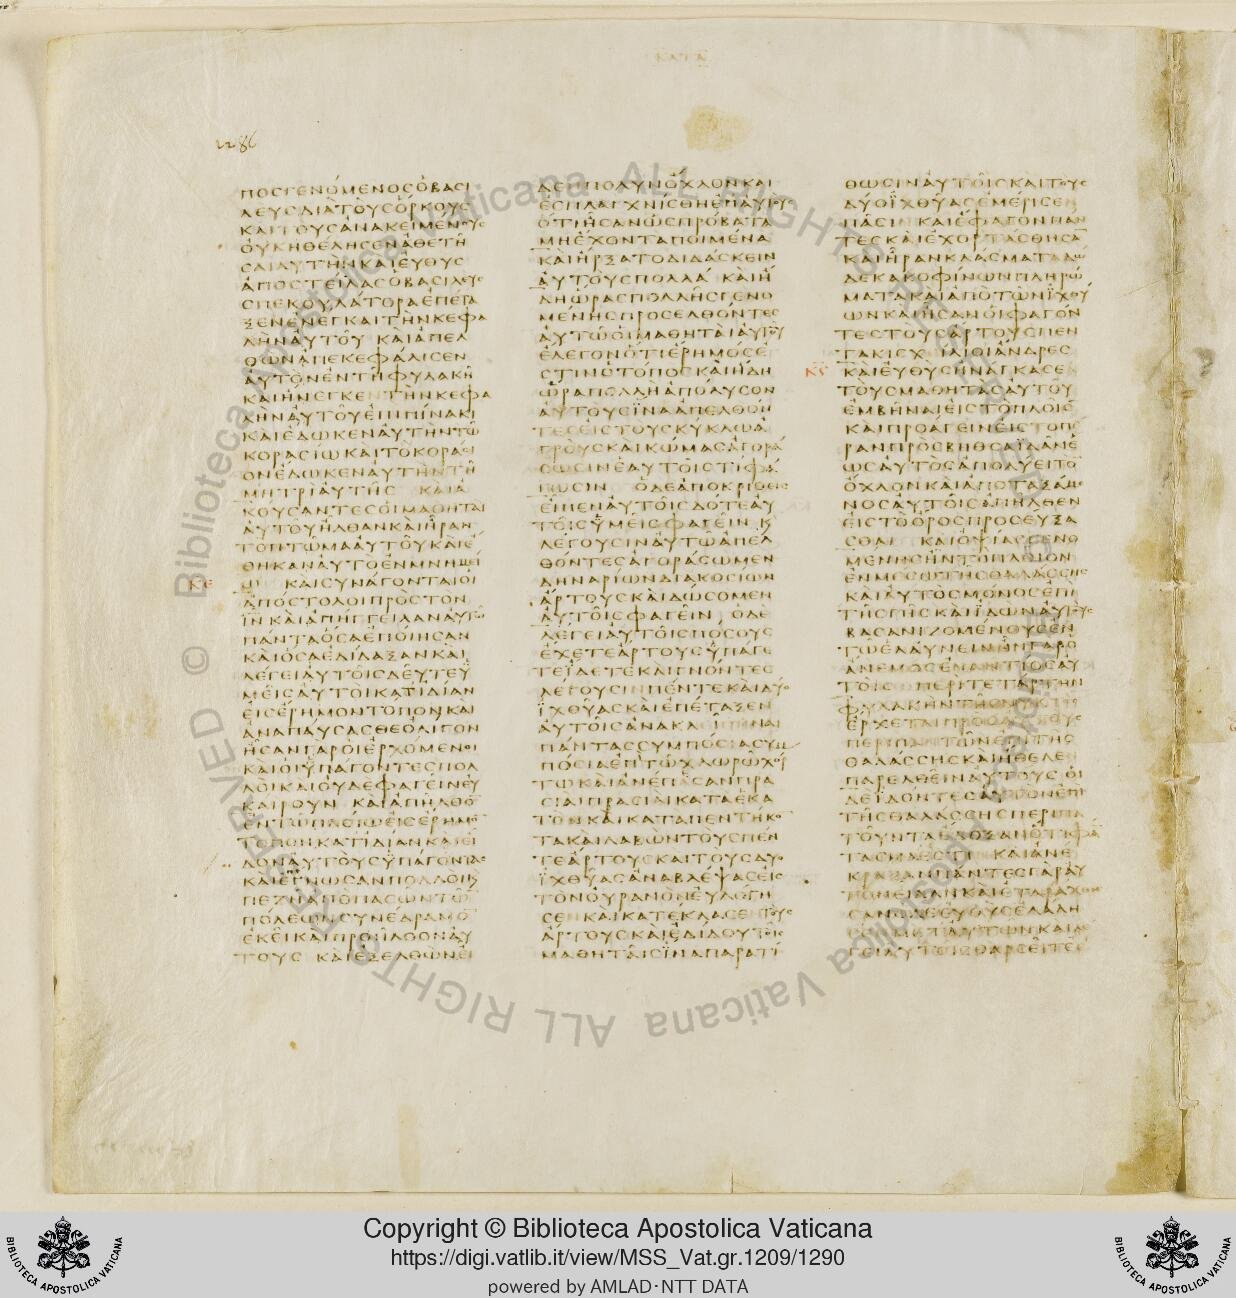 ΚΑΤΑ
1286
ΠΟΣΓΕΝΟΜΕΝΟΣΟΒΑΣΙ
ΛΕΥΣΔΙΑΤΟΥΣΟΡΚΟΥΣ
ΚΑΙΤΟΥΣΑΝΑΚΕΙΜΕΝΟΥΣ
ΟΥΚΗΘΕΛΗΣΕΝΑΘΕΤΗ
ΣΑΙΑΥΤΗΝΚΑΙΕΥΘΥΣ
ΑΠΟΣΤΕΙΛΑΣΟΒΑΣΙΛΕΥ
ΣΠΕΚΟΥΛΑΤΟΡΑΕΠΕΤΑ
ΞΕΝΕΝΕΓΚΑΙΤΗΝΚΕΦΑ
ΛΗΝΑΥΤΟΥ ΚΑΙΑΠΕΛ
ΘΩΝΑΠΕΚΕΦΑΛΙΣΕΝ
ΑΥΤΟΝΕΝΤΗΦΥΛΑΚΗ
ΚΑΙΗΝΕΓΚΕΝΤΗΝΚΕΦΑ
ΛΗΝΑΥΤΟΥΕΠΙΠΙΝΑΚΙ
ΚΑΙΕΔΩΚΕΝΑΥΤΗΝΤΩ
ΚΟΡΑΣΙΩΚΑΙΤΟΚΟΡΑΣΙ
ΟΝΕΔΩΚΕΝΑΥΤΗΝΤΗ
ΜΗΤΡΙΑΥΤΗΣ ΚΑΙΑ
ΚΟΥΣΑΝΤΕΣΟΙΜΑΘΗΤΑΙ
ΑΥΤΟΥΗΛΘΑΝΚΑΙΗΡΑΝ
ΤΟΠΤΩΜΑΑΥΤΟΥΚΑΙΕ
ΘΗΚΑΝΑΥΤΟΕΝΜΝΗΜΕΙ
ΚΕ Ω ΚΑΙΣΥΝΑΓΟΝΤΑΙΟΙ
ΑΠΟΣΤΟΛΟΙΠΡΟΣΤΟΝ
ΙΝΚΑΙΑΠΗΓΓΕΙΛΑΝΑΥΤΩ
ΠΑΝΤΑΟΣΑΕΠΟΙΗΣΑΝ
ΚΑΙΟΣΑΕΔΙΔΑΞΑΝΚΑΙ
ΛΕΓΕΙΑΥΤΟΙΣΔΕΥΤΕΥ
ΜΕΙΣΑΥΤΟΙΚΑΤΙΔΙΑΝ
ΕΙΣΕΡΗΜΟΝΤΟΠΟΝΚΑΙ
ΑΝΑΠΑΥΣΑΣΘΕΟΛΙΓΟΝ
ΗΣΑΝΓΑΡΟΙΕΡΧΟΜΕΝΟΙ
ΚΑΙΟΙΥΠΑΓΟΝΤΕΣΠΟΛ
ΛΟΙΚΑΙΟΥΔΕΦΑΓΕΙΝΕΥ
ΚΑΙΡΟΥΝ ΚΑΙΑΠΗΛΘΟ
ΕΝΤΩΠΛΟΙΩΕΙΣΕΡΗΜΟ
ΤΟΠΟΝΚΑΤΙΔΙΑΝΚΑΙΕΙ
ΔΟΝΑΥΤΟΥΣΥΠΑΓΟΝΤΑΣ
ΚΑΙΕΓΝΩΣΑΝΠΟΛΛΟΙΚ
ΠΕΖΗΑΠΟΠΑΣΩΝΤΩ
ΠΟΛΕΩΝΣΥΝΕΔΡΑΜΟ
ΕΚΕΙΚΑΙΠΡΟΗΛΘΟΝΑΥ
ΤΟΥΣ ΚΑΙΕΞΕΛΘΩΝΕΙ
ΔΕΝΠΟΛΥΝΟΧΛΟΝΚΑΙ
ΕΣΠΛΑΓΧΝΙΣΘΗΕΠΑΥΤΟΥΣ
ΟΤΙΗΣΑΝΩΣΠΡΟΒΑΤΑ
ΜΗΕΧΟΝΤΑΠΟΙΜΕΝΑ
ΚΑΙΗΡΞΑΤΟΔΙΔΑΣΚΕΙΝ
ΑΥΤΟΥΣΠΟΛΛΑ ΚΑΙΗ
ΔΗΩΡΑΣΠΟΛΛΗΣΓΕΝΟ
ΜΕΝΗΣΠΡΟΣΕΛΘΟΝΤΕΣ
ΑΥΤΩΟΙΜΑΘΗΤΑΙΑΥΤΟΥ
ΕΛΕΓΟΝΟΤΙΕΡΗΜΟΣΕ
ΣΤΙΝΟΤΟΠΟΣΚΑΙΗΔΗ
ΩΡΑΠΟΛΛΗΑΠΟΛΥΣΟΝ
ΑΥΤΟΥΣΙΝΑΑΠΕΛΘΟΝ
ΤΕΣΕΙΣΤΟΥΣΚΥΚΛΩΑ
ΓΡΟΥΣΚΑΙΚΩΜΑΣΑΓΟΡΑ
ΣΩΣΙΝΕΑΥΤΟΙΣΤΙΦΑ
ΓΩΣΙΝ ΟΔΕΑΠΟΚΡΙΘΕΙΣ
ΕΙΠΕΝΑΥΤΟΙΣΔΟΤΕΑΥ
ΤΟΙΣΥΜΕΙΣΦΑΓΕΙΝ Κ
ΛΕΓΟΥΣΙΝΑΥΤΩΑΠΕΛ
ΘΟΝΤΕΣΑΓΟΡΑΣΩΜΕΝ
ΔΗΝΑΡΙΩΝΔΙΑΚΟΣΙΩΝ
ΑΡΤΟΥΣΚΑΙΔΩΣΟΜΕΝ
ΑΥΤΟΙΣΦΑΓΕΙΝ, ΟΔΕ
ΛΕΓΕΙΑΥΤΟΙΣΠΟΣΟΥΣ
ΕΧΕΤΕΑΡΤΟΥΣΥΠΑΓΕ
ΤΕΙΔΕΤΕΚΑΙΓΝΟΝΤΕΣ
ΛΕΓΟΥΣΙΝΠΕΝΤΕΚΑΙΔΥΟ
ΙΧΘΥΑΣΚΑΙΕΠΕΤΑΞΕΝ
ΑΥΤΟΙΣΑΝΑΚΛΙΘΗΝΑΙ
ΠΑΝΤΑΣΣΥΜΠΟΣΙΑΣΥΜ
ΠΟΣΙΑΕΠΙΤΩΧΛΩΡΩΧΟΡ
ΤΩΚΑΙΑΝΕΠΕΣΑΝΠΡΑ
ΣΙΑΙΠΡΑΣΙΑΙΚΑΤΑΕΚΑ
ΤΟΝΚΑΙΚΑΤΑΠΕΝΤΗΚΟ
ΤΑΚΑΙΛΑΒΩΝΤΟΥΣΠΕΝ
ΤΕΑΡΤΟΥΣΚΑΙΤΟΥΣΔΥΟ
ΙΧΘΥΑΣΑΝΑΒΛΕΨΑΣΕΙΣ
ΤΟΝΟΥΡΑΝΟΝΕΥΛΟΓΗ
ΣΕΝΚΑΙΚΑΤΕΚΛΑΣΕΝΤΟΥΣ
ΑΡΤΟΥΣΚΑΙΕΔΙΔΟΥΤΟΙΣ
ΜΑΘΗΤΑΙΣΙΝΑΠΑΡΑΤΙ
ΘΩΣΙΝΑΥΤΟΙΣΚΑΙΤΟΥΣ
ΔΥΟΙΧΘΥΑΣΕΜΕΡΙΣΕΝ
ΠΑΣΙ ΚΑΙΕΦΑΓΟΝΠΑΝ
ΤΕΣΚΑΙΕΧΟΡΤΑΣΘΗΣΑ
ΚΑΙΗΡΑΝΚΛΑΣΜΑΤΑΔΩ
ΔΕΚΑΚΟΦΙΝΩΝΠΛΗΡΩ
ΜΑΤΑΚΑΙΑΠΟΤΩΝΙΧΘΥ
ΩΝΚΑΙΗΣΑΝΟΙΦΑΓΟΝ
ΤΕΣΤΟΥΣΑΡΤΟΥΣΠΕΝ
ΤΑΚΙΣΧΙΛΙΟΙΑΝΔΡΕΣ
ΚϚ ΚΑΙΕΥΘΥΣΗΝΑΓΚΑΣΕ
ΤΟΥΣΜΑΘΗΤΑΣΑΥΤΟΥ
ΕΜΒΗΝΑΙΕΙΣΤΟΠΛΟΙΟ
ΚΑΙΠΡΟΑΓΕΙΝΕΙΣΤΟΠΕ
ΡΑΝΠΡΟΣΒΗΘΣΑΙΔΑΝΕ
ΩΣΑΥΤΟΣΑΠΟΛΥΕΙΤΟ
ΟΧΛΟΝΚΑΙΑΠΟΤΑΞΑΜΕ
ΝΟΣΑΥΤΟΙΣΑΠΗΛΘΕΝ
ΕΙΣΤΟΟΡΟΣΠΡΟΣΕΥΞΑ
ΣΘΑΙ ΚΑΙΟΨΙΑΣΓΕΝΟ
ΜΕΝΗΣΗΝΤΟΠΛΟΙΟΝ
ΕΝΜΕΣΩΤΗΣΘΑΛΑΣΣΗΣ
ΚΑΙΑΥΤΟΣΜΟΝΟΣΕΠΙ
ΤΗΣΓΗΣΚΑΙΙΔΩΝΑΥΤΟΥΣ
ΒΑΣΑΝΙΖΟΜΕΝΟΥΣΕΝ
ΤΩΕΛΑΥΝΕΙΝΗΝΓΑΡΟ
ΑΝΕΜΟΣΕΝΑΝΤΙΟΣΑΥ
ΤΟΙΣ ΠΕΡΙΤΕΤΑΡΤΗΝ
ΦΥΛΑΚΗΝΤΗΣΝΥΚΤΟΣ
ΕΡΧΕΤΑΙΠΡΟΣΑΥΤΟΥΣ
ΠΕΡΙΠΑΤΩΝΕΠΙΤΗΣ
ΘΑΛΑΣΣΗΣΚΑΙΗΘΕΛΕ
ΠΑΡΕΛΘΕΙΝΑΥΤΟΥΣ ΟΙ
ΔΕΙΔΟΝΤΕΣΑΥΤΟΝΕΠΙ
ΤΗΣΘΑΛΑΣΣΗΣΠΕΡΙΠΑ
ΤΟΥΝΤΑΕΔΟΞΑΝΟΤΙΦΑ
ΤΑΣΜΑΕΣΤΙ ΚΑΙΑΝΕ
ΚΡΑΞΑΝΠΑΝΤΕΣΓΑΡΑΥ
ΤΟΝΕΙΔΑΝΚΑΙΕΤΑΡΑΧΘΗ
ΣΑΝΟΔΕΕΥΘΥΣΕΛΑΛΗ
ΣΕΝΜΕΤΑΥΤΩΝΚΑΙΛΕ
ΓΕΙΑΥΤΟΙΣΘΑΡΣΕΙΤΕΕ
Biblioteca Apostolica Vaticana ALL RIGHTS RESERVED ©
Copyright © Biblioteca Apostolica Vaticana
https://digi.vatlib.it/view/MSS_Vat.gr.1209/1290
powered by AMLAD·NTT DATA
BIBLIOTECA APOSTOLICA VATICANA
BIBLIOTECA APOSTOLICA VATICANA